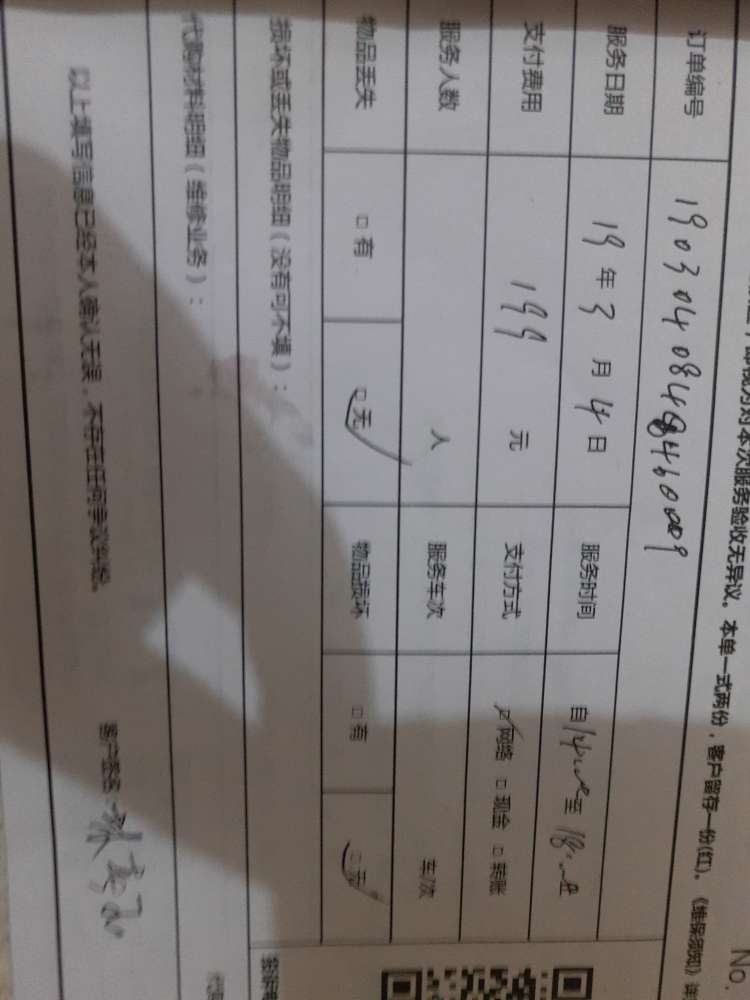 No.
本次服务验收无异议。本单一式两份，客户留存一份(红)。《维保须知》详
订单编号
服务日期 19年3月4日 服务时间 自14:00至18:00
支付费用 199元 支付方式 ☑网络 □现金 □转账
服务人数 人 服务车次 车/次
物品丢失 □有 ☑无 物品损坏 □有 ☑无
损坏或丢失物品明细（没有可不填）：
代购材料明细（维修业务）：
以上填写信息已经本人确认无误，不存在任何争议纠纷。 客户签名：